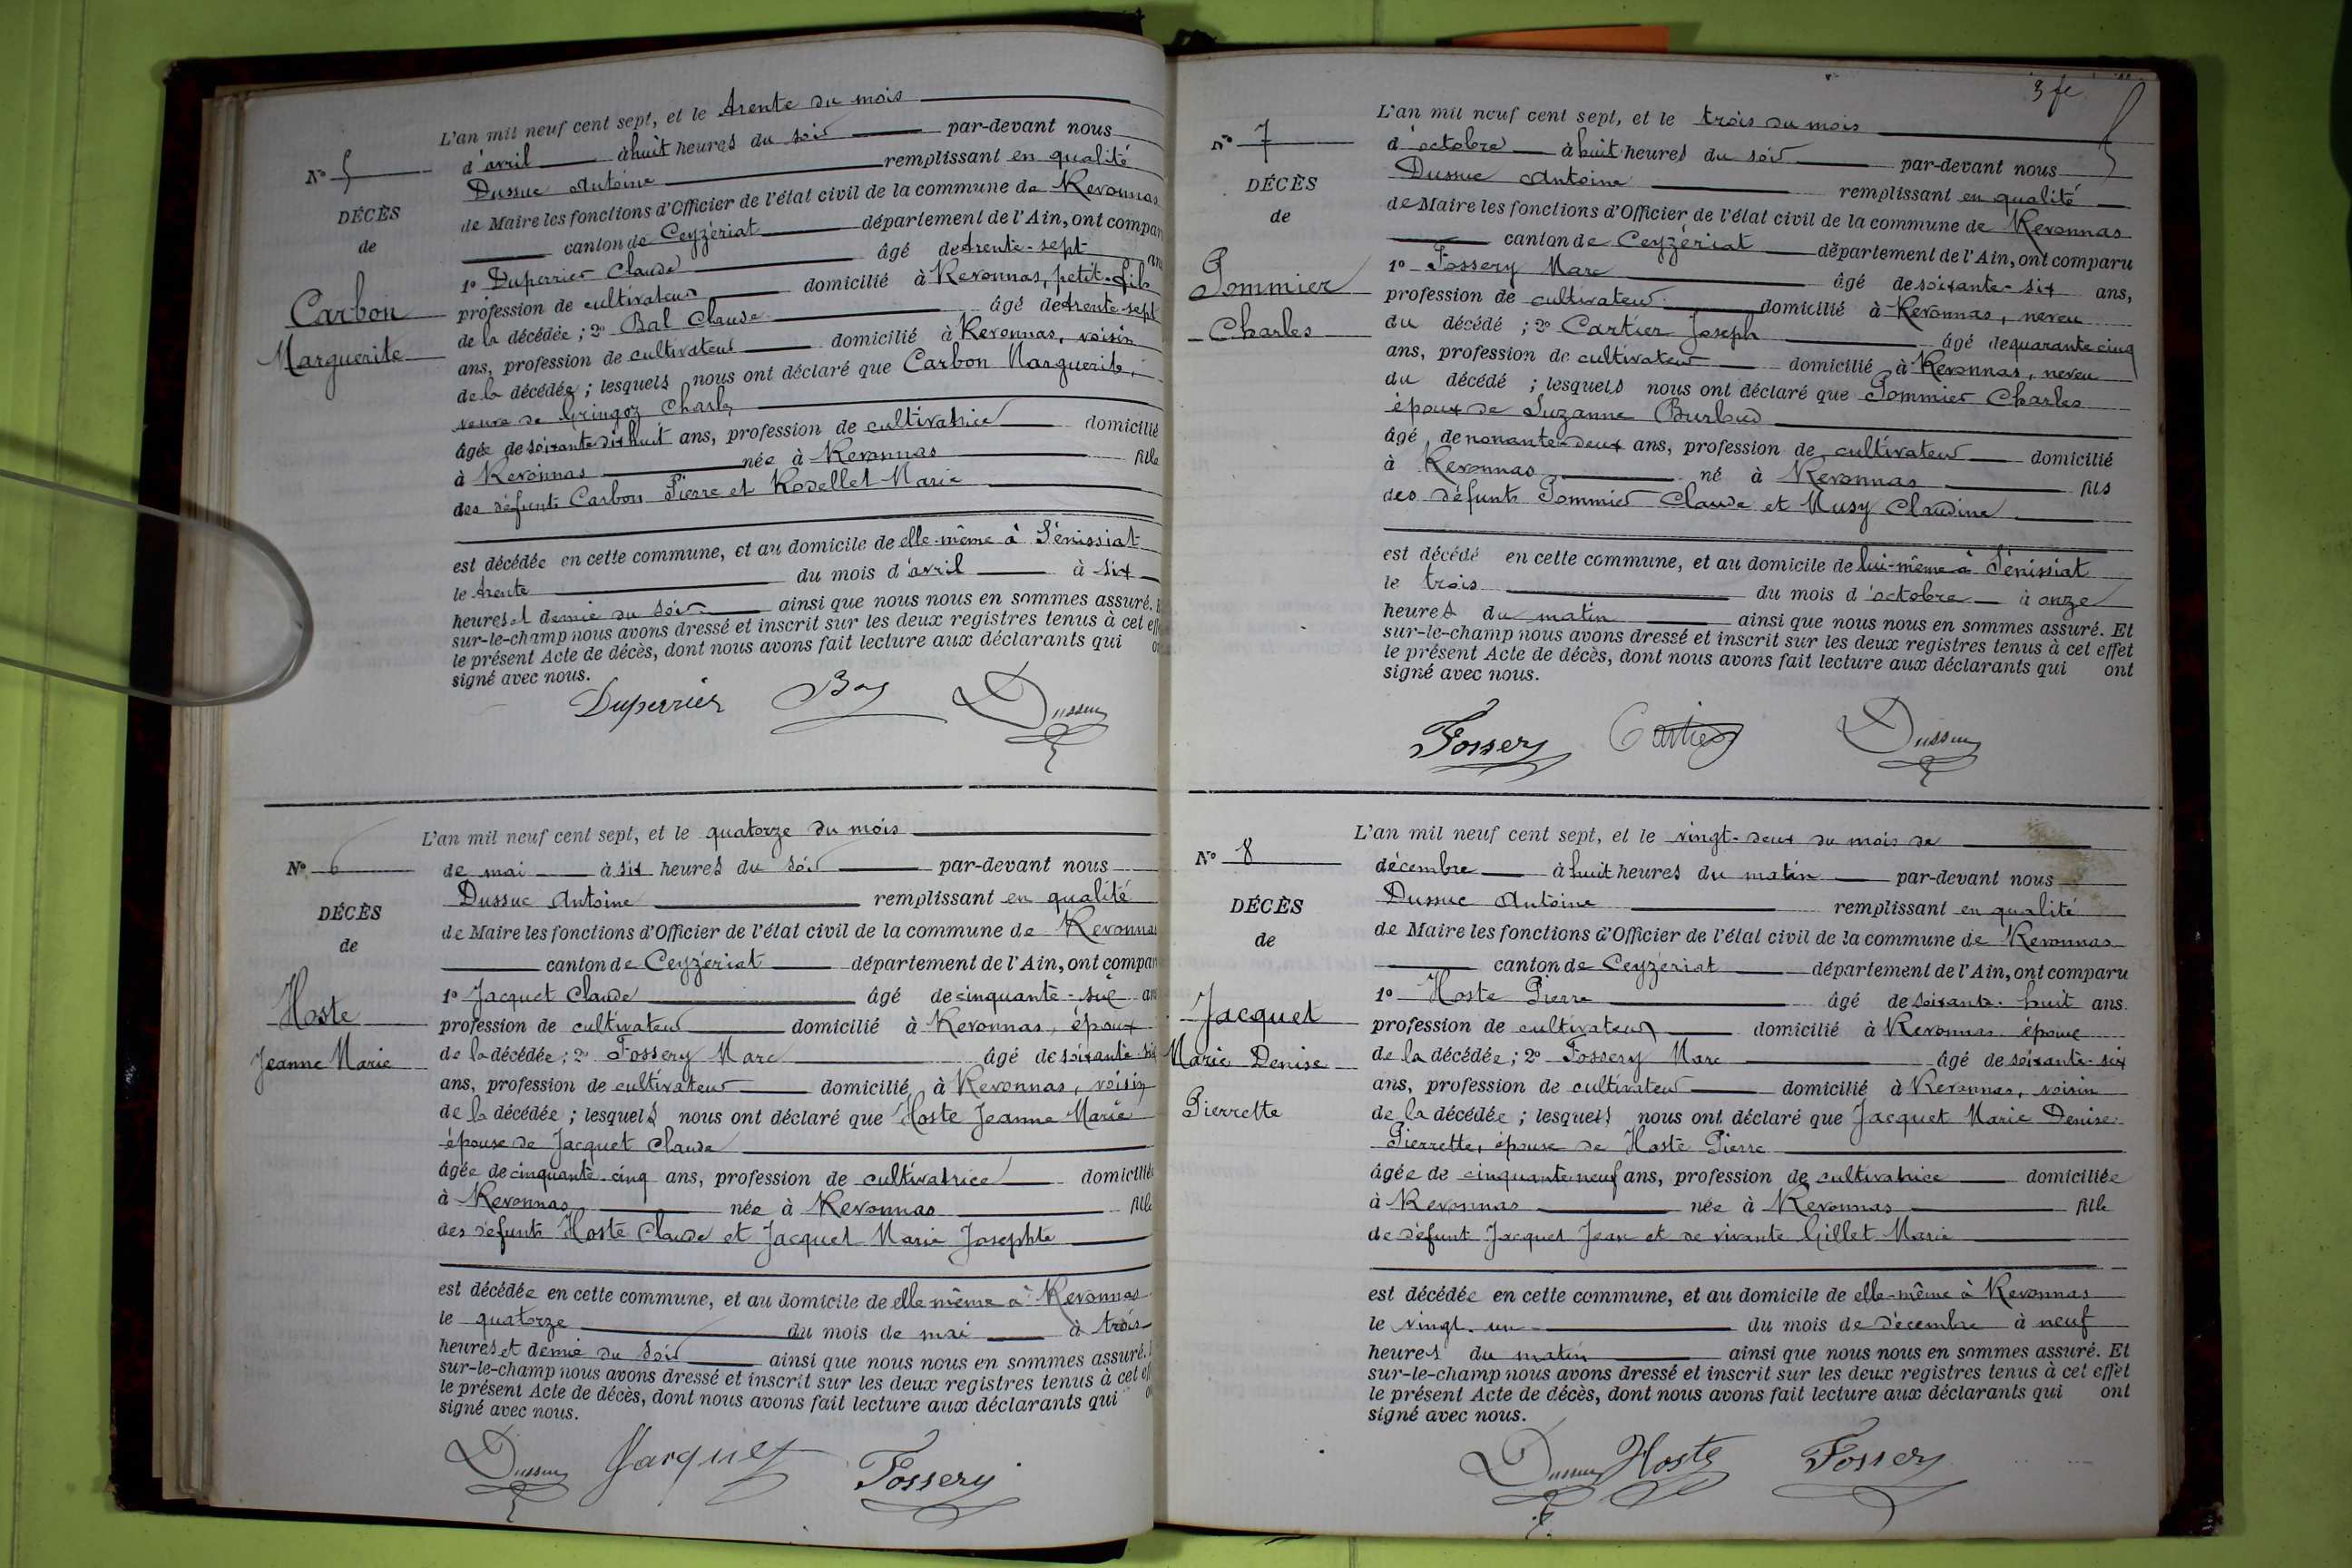 L'an mil neuf cent sept, et le trente du mois
N° 5
d'avril à huit heures du soir par-devant nous
Dussuc Antoine remplissant en qualité
DÉCÈS
de Maire les fonctions d'Officier de l'état civil de la commune de Revonnas
de
canton de Ceyzériat département de l'Ain, ont compar
1° Duperrier Claude âgé de trente-sept ans
Carbon
profession de cultivateur domicilié à Revonnas, petit-fils
Marguerite
de la décédée ; 2° Bal Claude âgé de trente-sept
ans, profession de cultivateur domicilié à Revonnas, voisin
de la décédée ; lesquels nous ont déclaré que Carbon Marguerite,
veuve de Gringoz Charles
âgée de soixante dix huit ans, profession de cultivatrice domicilié
à Revonnas née à Revonnas fille
des défunts Carbon Pierre et Rodellet Marie
est décédée en cette commune, et au domicile de elle-même à Sénissiat
le trente du mois d'avril à six
heures et demie du soir ainsi que nous nous en sommes assuré.
sur-le-champ nous avons dressé et inscrit sur les deux registres tenus à cet eff
le présent Acte de décès, dont nous avons fait lecture aux déclarants qui
signé avec nous.
Duperrier Dussuc
L'an mil neuf cent sept, et le quatorze du mois
N° 6
de mai à six heures du soir par-devant nous
Dussuc Antoine remplissant en qualité
DÉCÈS
de Maire les fonctions d'Officier de l'état civil de la commune de Revonnas
de
canton de Ceyzériat département de l'Ain, ont compar
1° Jacquet Claude âgé de cinquante-six an
Hoste
profession de cultivateur domicilié à Revonnas, époux
Jeanne Marie
de la décédée ; 2° Fossery Marc âgé de soixante-six
ans, profession de cultivateur domicilié à Revonnas, voisin
de la décédée ; lesquels nous ont déclaré que Hoste Jeanne Marie
épouse de Jacquet Claude
âgée de cinquante-cinq ans, profession de cultivatrice domiciliée
à Revonnas née à Revonnas fille
des défunts Hoste Claude et Jacquet Marie Josephte
est décédée en cette commune, et au domicile de elle même à Revonnas
le quatorze du mois de mai à trois
heures et demie du soir ainsi que nous nous en sommes assuré.
sur-le-champ nous avons dressé et inscrit sur les deux registres tenus à cet ef
le présent Acte de décès, dont nous avons fait lecture aux déclarants qui
signé avec nous.
Dussuc Jacquet Fossery
L'an mil neuf cent sept, et le trois du mois
N° 7
d'octobre à huit heures du soir par-devant nous
Dussuc Antoine remplissant en qualité
DÉCÈS
de Maire les fonctions d'Officier de l'état civil de la commune de Revonnas
de
canton de Ceyzériat département de l'Ain, ont comparu
1° Fossery Marc âgé de soixante-six ans,
Pommier
profession de cultivateur domicilié à Revonnas, neveu
Charles
du décédé ; 2° Cartier Joseph âgé de quarante cinq
ans, profession de cultivateur domicilié à Revonnas, neveu
du décédé ; lesquels nous ont déclaré que Pommier Charles
époux de Suzanne Burloud
âgé de nonante-deux ans, profession de cultivateur domicilié
à Revonnas né à Revonnas fils
des défunts Pommier Claude et Musy Claudine
est décédé en cette commune, et au domicile de lui-même à Sénissiat
le trois du mois d'octobre à onze
heures du matin ainsi que nous nous en sommes assuré. Et
sur-le-champ nous avons dressé et inscrit sur les deux registres tenus à cet effet
le présent Acte de décès, dont nous avons fait lecture aux déclarants qui ont
signé avec nous.
Fossery Cartier Dussuc
L'an mil neuf cent sept, et le vingt-deux du mois de
N° 8
décembre à huit heures du matin par-devant nous
Dussuc Antoine remplissant en qualité
DÉCÈS
de Maire les fonctions d'Officier de l'état civil de la commune de Revonnas
de
canton de Ceyzériat département de l'Ain, ont comparu
1° Hoste Pierre âgé de soixante-huit ans
Jacquet
profession de cultivateur domicilié à Revonnas époux
Marie Denise
de la décédée ; 2° Fossery Marc âgé de soixante-six
ans, profession de cultivateur domicilié à Revonnas, voisin
Pierrette
de la décédée ; lesquels nous ont déclaré que Jacquet Marie Denise
Pierrette, épouse de Hoste Pierre
âgée de cinquante neuf ans, profession de cultivatrice domiciliée
à Revonnas née à Revonnas fille
de défunt Jacquet Jean et de vivante Gillet Marie
est décédée en cette commune, et au domicile de elle-même à Revonnas
le vingt-un du mois de décembre à neuf
heures du matin ainsi que nous nous en sommes assuré. Et
sur-le-champ nous avons dressé et inscrit sur les deux registres tenus à cet effet
le présent Acte de décès, dont nous avons fait lecture aux déclarants qui ont
signé avec nous.
Dussuc Hoste Fossery